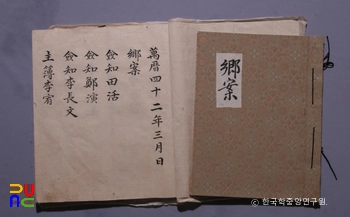 鄕案
萬曆四十二年三月日
鄕案
僉知田活
僉知鄭演
僉知李長文
主簿李甯
© 한국학중앙연구원.